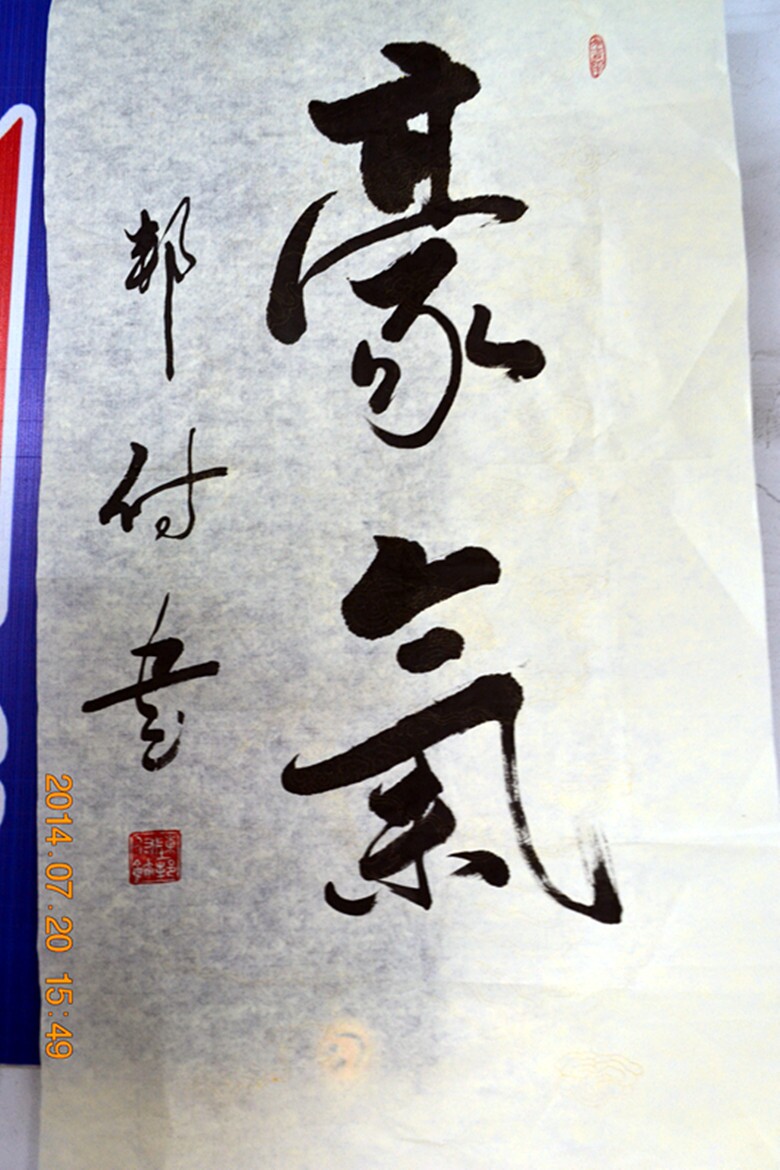 豪氣
邦付書
2014.07.20 15:49